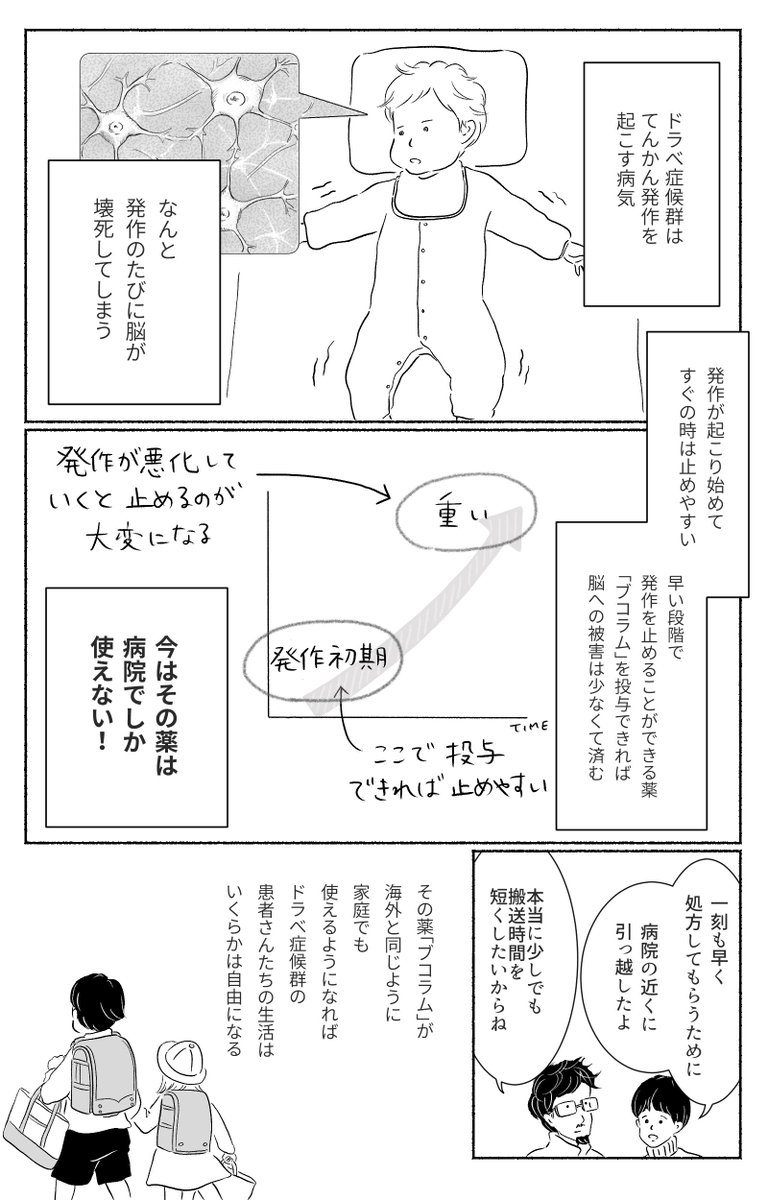 ドラベ症候群は
てんかん発作を
起こす病気
なんと
発作のたびに脳が
壊死してしまう
発作が起こり始めて
すぐの時は止めやすい
早い段階で
発作を止めることができる薬
「ブコラム」を投与できれば
脳への被害は少なくて済む
発作が悪化して
いくと止めるのが
大変になる
重い
発作初期
TIME
ここで投与
できれば止めやすい
今はその薬は
病院でしか
使えない！
一刻も早く
処方してもらうために
病院の近くに
引っ越したよ
本当に少しでも
搬送時間を
短くしたいからね
その薬「ブコラム」が
海外と同じように
家庭でも
使えるようになれば
ドラベ症候群の
患者さんたちの生活は
いくらかは自由になる